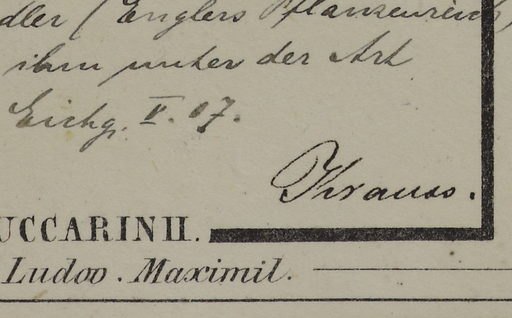 dler (Englers Pflanzenreich)
ihm unter der Art
Eichg. V. 07.
Krauss.
UCCARINII.
Ludov. Maximil.